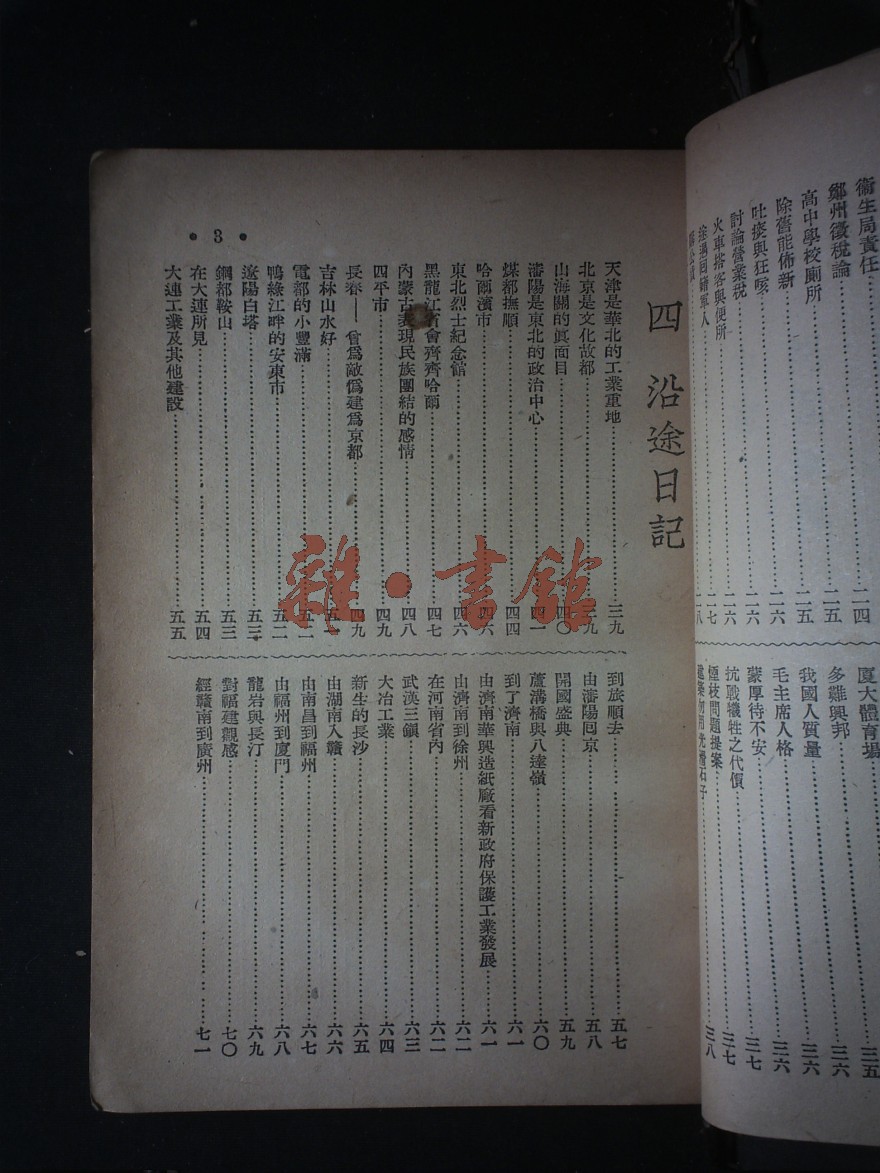 衞生局責任……二四
鄭州徵稅論……二五
高中學校廁所……二五
除舊能佈新……二六
吐痰與狂咳……二六
討論營業稅……二六
火車搭客與便所……二七
厦大體育場……三五
多難興邦……三六
我國人質量……三六
毛主席人格……三六
蒙厚待不安……三七
抗戰犧牲之代價……三七
煙枝問題提案……三八
四 沿途日記
天津是華北的工業重地……三九
北京是文化故都……三九
山海關的眞面目……四〇
瀋陽是東北的政治中心……四一
煤都撫順……四四
哈爾濱市……四六
東北烈士紀念館……四六
黑龍江省會齊齊哈爾……四七
內蒙古表現民族團結的感情……四八
四平市……四九
長春——曾爲敵僞建爲京都……四九
吉林山水好……五一
電都的小豐滿……五二
鴨綠江畔的安東市……五二
遼陽白塔……五三
鋼都鞍山……五三
在大連所見……五四
大連工業及其他建設……五五
到旅順去……五七
由瀋陽囘京……五八
開國盛典……五九
蘆溝橋與八達嶺……六〇
到了濟南……六一
由濟南華興造紙廠看新政府保護工業發展……六一
由濟南到徐州……六二
在河南省內……六二
武漢三鎭……六三
大冶工業……六四
新生的長沙……六五
由湖南入贛……六六
由南昌到福州……六七
由福州到廈門……六八
龍岩與長汀……六九
對福建觀感……七〇
經贛南到廣州……七一
• 3 •
雜·書館